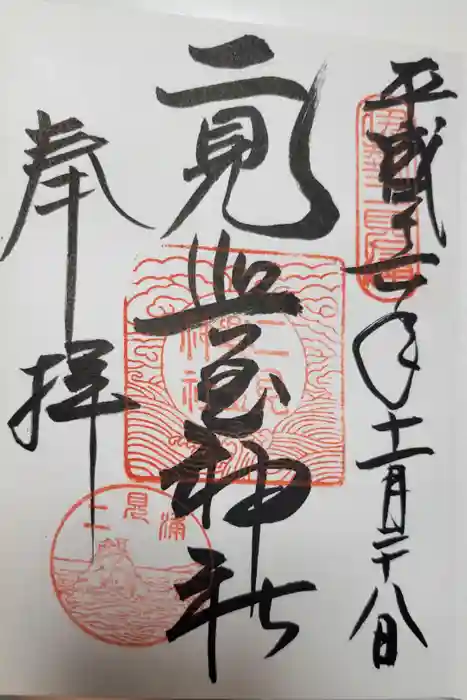 平成三十年十一月二十八日
伊勢二見浦
二見興玉神社
二見
神社
奉拝
二見浦